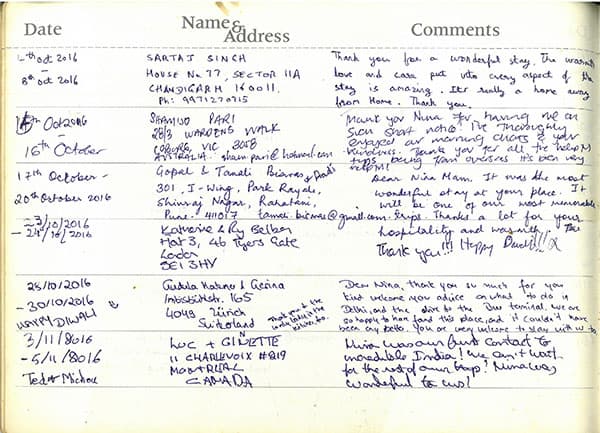 Date Name & Address Comments
4th Oct 2016 SARTAJ SINGH Thank you for a wonderful stay. The warmth
- HOUSE No. 77, SECTOR 11A love and care put into every aspect of the
8th Oct 2016 CHANDIGARH 160011. stay is amazing. It's really a home away
Ph: 9971270715 from Home. Thank you.
14th Oct 2016 PARI Thank you Nina for having me on
- 28/3 WARDENS WALK such short notice! I've thoroughly
16th October COBURG, VIC 3058 enjoyed our morning chats & your
AUSTRALIA. kindness. Thank you for all the helpful
tips being from overseas it's been very
helpful!
17th October - Gopal & Tanali Biswas & Dear Nina Mam. It was the most
301, I-Wing, Park Royale, wonderful stay at your place. It
20th October 2016 Nagar, Rahatani, will be one of our most memorable
Pune. 411017 trips. Thanks a lot for your
hospitality and warmth. The
- 23/10/2016 Katherine & Ry
- 24/10/2016 Flat 3, 46 Tyers Gate Thank you!!! Happy
London
SE1 3HY
28/10/2016 Dear Nina, thank you so much for your
- 30/10/2016 165 kind welcome you advice on what to do in
HAPPY DIWALI 8049 Zürich Delhi, and the drive to the Bus terminal. we are
Switzerland Thank you & the so happy to have found this place, and it couldn't have
been any better. You are very welcome to stay with us too
3/11/2016 LUC + GINETTE Nina was our first contact to
- 5/11/2016 11 CHARLEVOIX #219 incredible India! We can't wait
MONTREAL for the rest of our trip! Nina was
CANADA wonderful to us!